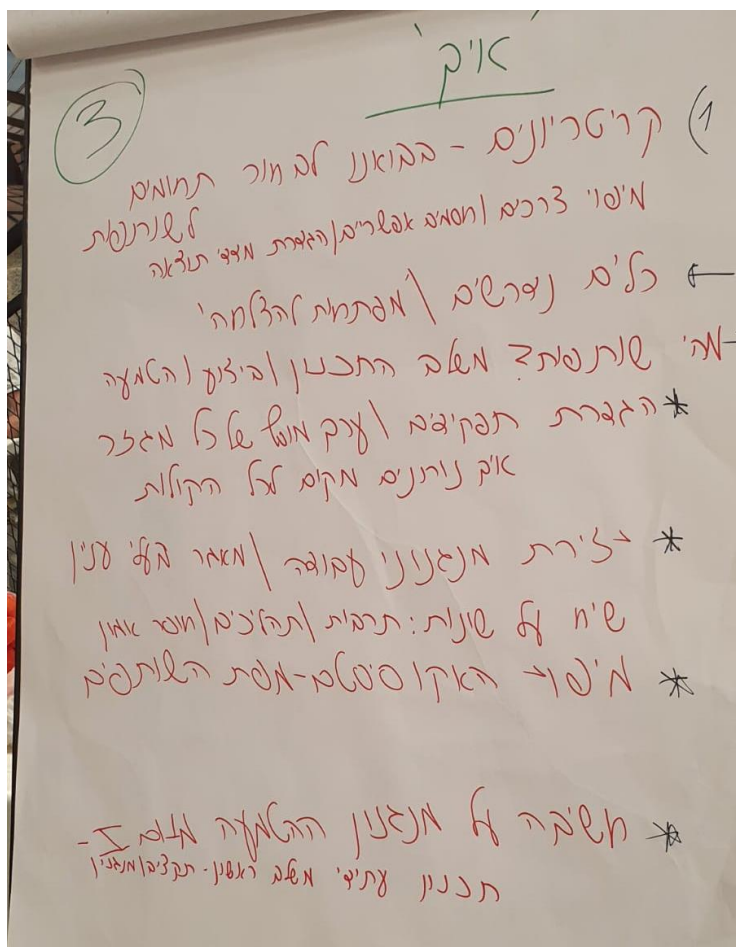 'איך'
3
1) קריטריונים - בבואנו לבחור תחומים
לשותפות
מיפוי צרכים / חסמים אפשריים / הגדרת מדדי תוצאה
← כלים נדרשים / מפתחות להצלחה'
- מה' שותפות? משלב התכנון / ביצוע / הטמעה
* הגדרת תפקידים / ערך מוסף של כל מגזר
איך נותנים מקום לכל הקולות
* יצירת מנגנוני עבודה / מאגר בעלי ענין
שיח על שונות: תרבות / תהליכים / חוסר אמון
* מיפוי האקוסיסטם - מפת השותפים
* חשיבה על מנגנון ההטמעה מיום I -
תכנון עתידי משלב ראשון - תקציב / מנגנון